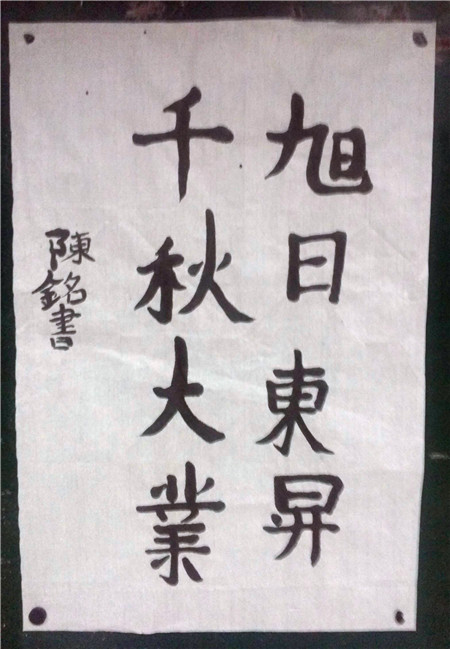 旭日東昇
千秋大業
陳銘書